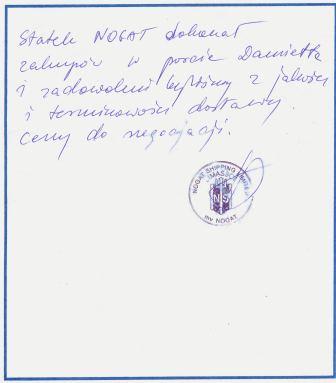 Statek NOGAT dokonał
zakupów w porcie Damietta
i zadowoleni byliśmy z jakości
i terminowości dostawy.
Ceny do negocjacji.
NOGAT SHIPPING LIMITED
LIMASSOL
NS
mv NOGAT